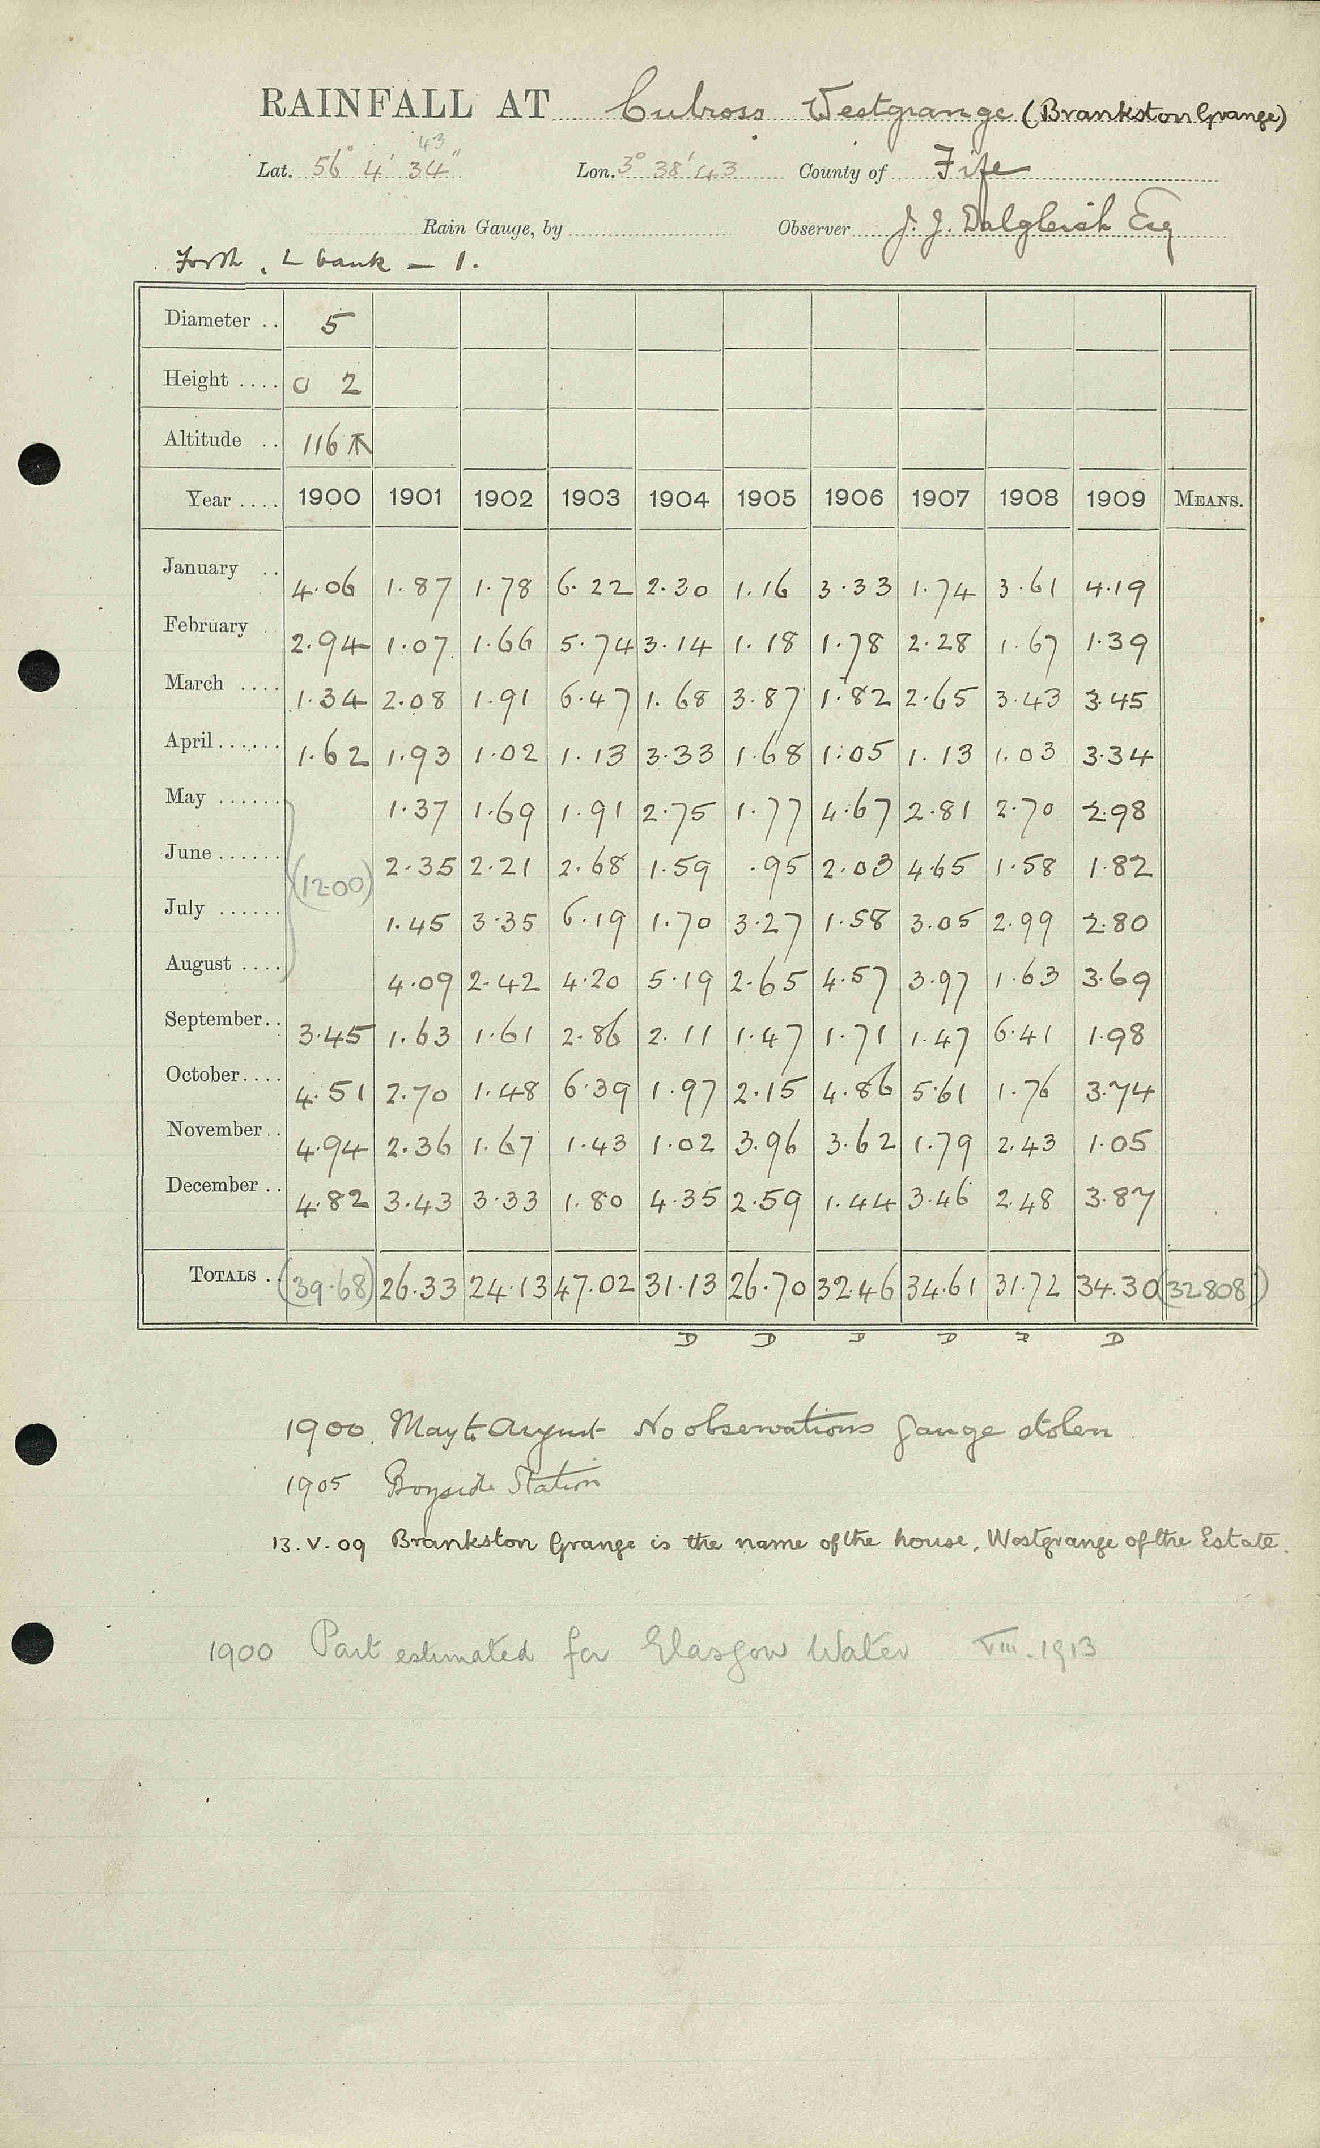 RAINFALL AT Culross Westgrange (Brankston Grange)
43
Lat. 56° 4' 34" Lon. 3° 38' 43 County of Fife
Rain Gauge, by Observer J. J. Dalgleish Esq
Forth, L bank — 1.
Diameter .. 5
Height .... 0 2
Altitude .. 116
Year .... 1900 1901 1902 1903 1904 1905 1906 1907 1908 1909 MEANS.
January .. 4.06 1.87 1.78 6.22 2.30 1.16 3.33 1.74 3.61 4.19
February 2.94 1.07 1.66 5.74 3.14 1.18 1.78 2.28 1.67 1.39
March .... 1.34 2.08 1.91 6.47 1.68 3.87 1.82 2.65 3.43 3.45
April...... 1.62 1.93 1.02 1.13 3.33 1.68 1.05 1.13 1.03 3.34
May ...... 1.37 1.69 1.91 2.75 1.77 4.67 2.81 2.70 2.98
June...... (12.00) 2.35 2.21 2.68 1.59 .95 2.03 4.65 1.58 1.82
July ...... 1.45 3.35 6.19 1.70 3.27 1.58 3.05 2.99 2.80
August .... 4.09 2.42 4.20 5.19 2.65 4.57 3.97 1.63 3.69
September.. 3.45 1.63 1.61 2.86 2.11 1.47 1.71 1.47 6.41 1.98
October.... 4.51 2.70 1.48 6.39 1.97 2.15 4.86 5.61 1.76 3.74
November.. 4.94 2.36 1.67 1.43 1.02 3.96 3.62 1.79 2.43 1.05
December .. 4.82 3.43 3.33 1.80 4.35 2.59 1.44 3.46 2.48 3.87
TOTALS .. (39.68) 26.33 24.13 47.02 31.13 26.70 32.46 34.61 31.72 34.30 (32.808)
D D D D D D
1900 May to August No observations gauge stolen
1905 Station
13.V.09 Brankston Grange is the name of the house, Westgrange of the Estate.
1900 Part estimated for Glasgow Water VIII.1913